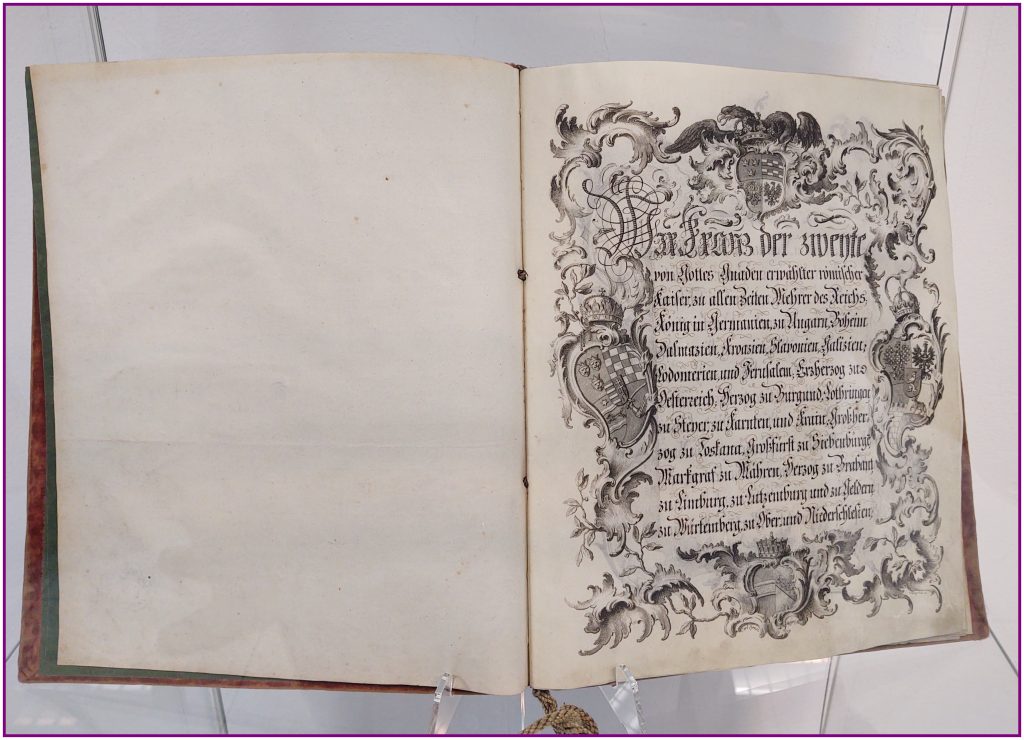 Wir Franz der zweyte
von Gottes Gnaden erwählter römischer
Kaiser, zu allen Zeiten Mehrer des Reichs,
König in Germanien, zu Ungarn, Boheim
Dalmazien, Kroazien, Slavonien, Galizien,
Lodomerien, und Jerusalem, Erzherzog zu
Oesterreich, Herzog zu Burgund, Lothringen
zu Steyer, zu Kärnten, und Krain, Großher-
zog zu Toskana, Großfürst zu Siebenbürgē
Markgraf zu Mähren, Herzog zu Brabant
zu Limburg, zu Lutzemburg und zu Geldern
zu Würtemberg, zu Ober, und Niederschlesien,